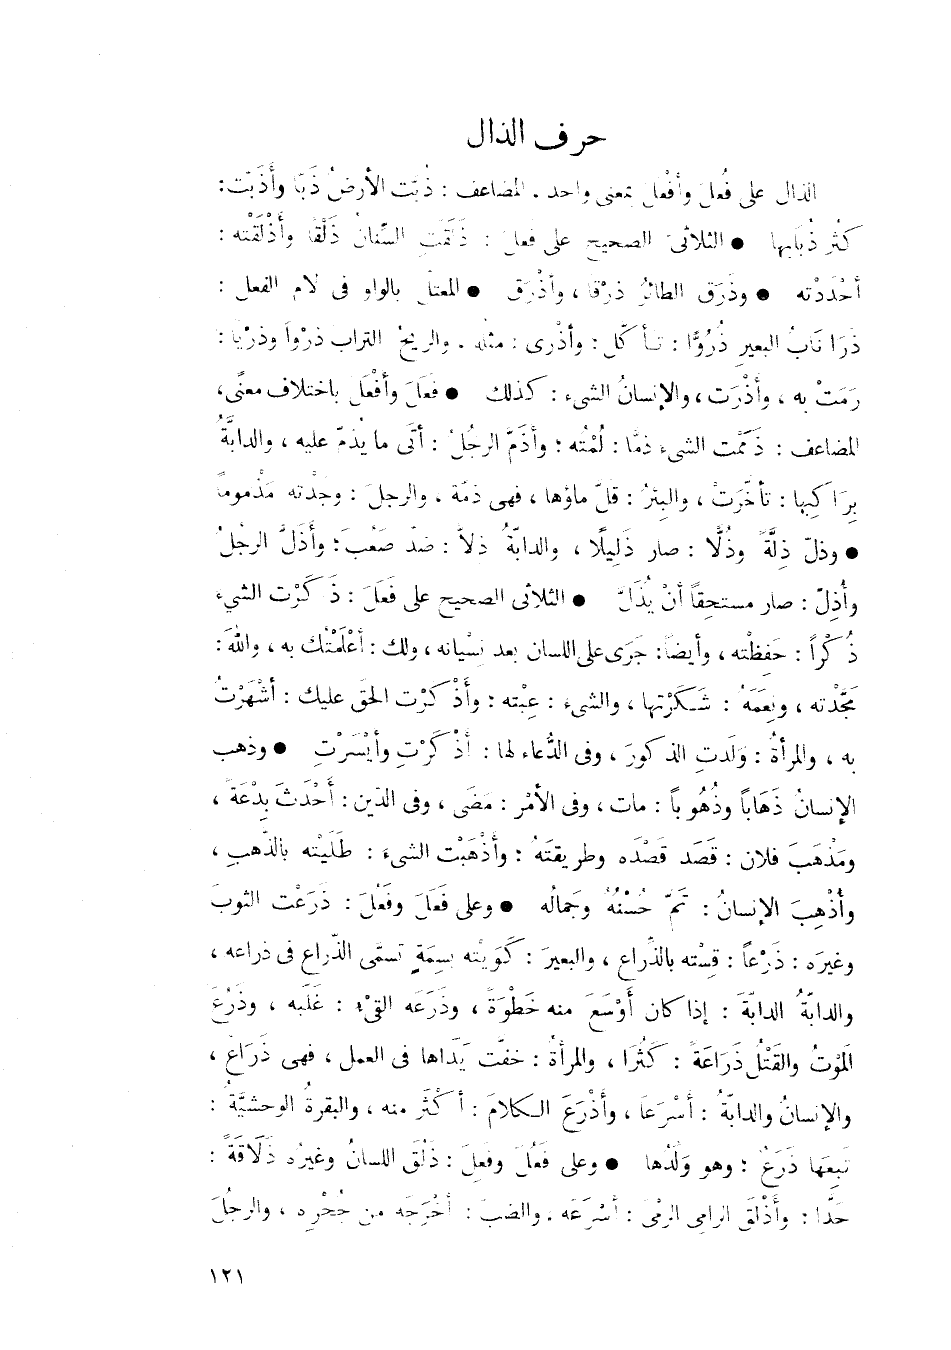 حرف الذال
الذال على فُعِلَ وأَفْعَلَ بمعنى واحد . المضاعف : ذُبَّت الأرضُ ذَبًّا وأَذَبَّت :
كَثُر ذُبَابها ● الثلاثىّ الصحيح على فَعَلَ : ذَلَقَتِ السِّنانُ ذَلْقًا وأَذْلَقْته :
أحْدَدْته ● وذَرَق الطائرُ ذرْقًا ، وأَذْرَق ● المعتل بالواو فى لام الفعل :
ذَرَا نَابُ البعيرِ ذُرُوًّا : تأكّل : وأذْرى : مثله . والريحُ التراب ذرْواً وذرْيًا :
رَمَتْ به ، وأَذْرَت ، والإنسانُ الشىء : كذلك ● فَعَلَ وأفْعَل باختلاف معنًى ،
المضاعف : ذَمَمْت الشىءَ ذمًّا : لُمْتُه ؛ وأذَمَّ الرجُلُ : أتَى ما يُذَمّ عليه ، والدابَّةُ
بِرَاكِبِها : تأخَّرَتْ ، والبِئرُ : قلّ ماؤها ، فهى ذمّة . والرجلَ : وجَدْته مَذْموماً
● وذلّ ذِلَّةً وذُلًّا : صار ذَلِيلًا ، والدابّةُ ذلاًّ : ضدّ صَعُبَ ؛ وأَذَلَّ الرجلُ
وأُذِلّ : صار مستحِقاً أنْ يُذَلَّ ● الثلاثى الصحيح على فَعَلَ : ذَكَرْت الشىء
ذُكْراً : حَفِظْته ، وأيضًا : جَرَى على اللسان بعد نِسْيانه ، ولك : أعْلَمْتُك به ، واللهَ :
مَجَّدْته ، ونِعَمَهُ : شَكَرْتها ، والشىءَ : عِبْته ؛ وأَذْكَرْت الحقّ عليك : أشْهَرْتُ
به ، والمرأةُ : وَلَدتِ الذكورَ ، وفى الدُّعاء لها : أذْكَرْتِ وأيْسَرْتِ ● وذهب
الإنسانُ ذَهَاباً وذُهُوباً : مات ، وفى الأمْرِ : مَضَى ، وفى الدّين : أَحْدَثَ بِدْعَةً ،
ومَذْهَبَ فلان : قَصَد قَصْدَه وطريقتَهُ ؛ وأَذْهَبْت الشىءَ : طَلَيْته بالذَّهبِ ،
وأُذْهِبَ الإنسانُ : تَمّ حُسْنُهُ وجَمالُه ● وعلى فَعَلَ وفَعُلَ : ذَرَعْت الثوبَ
وغيرَه : ذَرْعاً : قِسْته بالذِّراع ، والبعيرَ : كَوَيْته بسِمَةٍ تسمَّى الذّراع فى ذراعه ،
والدابّةُ الدابّةَ : إذا كان أَوْسَعَ منه خَطْوَةً ، وذَرَعَه القىْء : غَلَبه ، وذَرُعَ
المَوْتُ والقَتْلُ ذَرَاعَةً : كَثُرَا ، والمرأةُ : خفّت يَدَاها فى العمل ، فهى ذَرَاعٌ ،
والإنسانُ والدابّةُ : أسْرَعَا ، وأَذْرَعَ الكلامَ : أكْثَر منه ، والبقرةُ الوحشيَّةُ :
تَبِعَها ذَرَعٌ ؛ وهو وَلَدُها ● وعلى فَعُلَ وفَعِلَ : ذَلُقَ اللسانُ وغيرُه ذَلَاقَةً :
حَدَّا : وأَذْلَقَ الرامى الرمْىَ : أسْرَعَه . والضبّ : أخْرَجَه من جُحْرِه ، والرجُلَ
١٢١